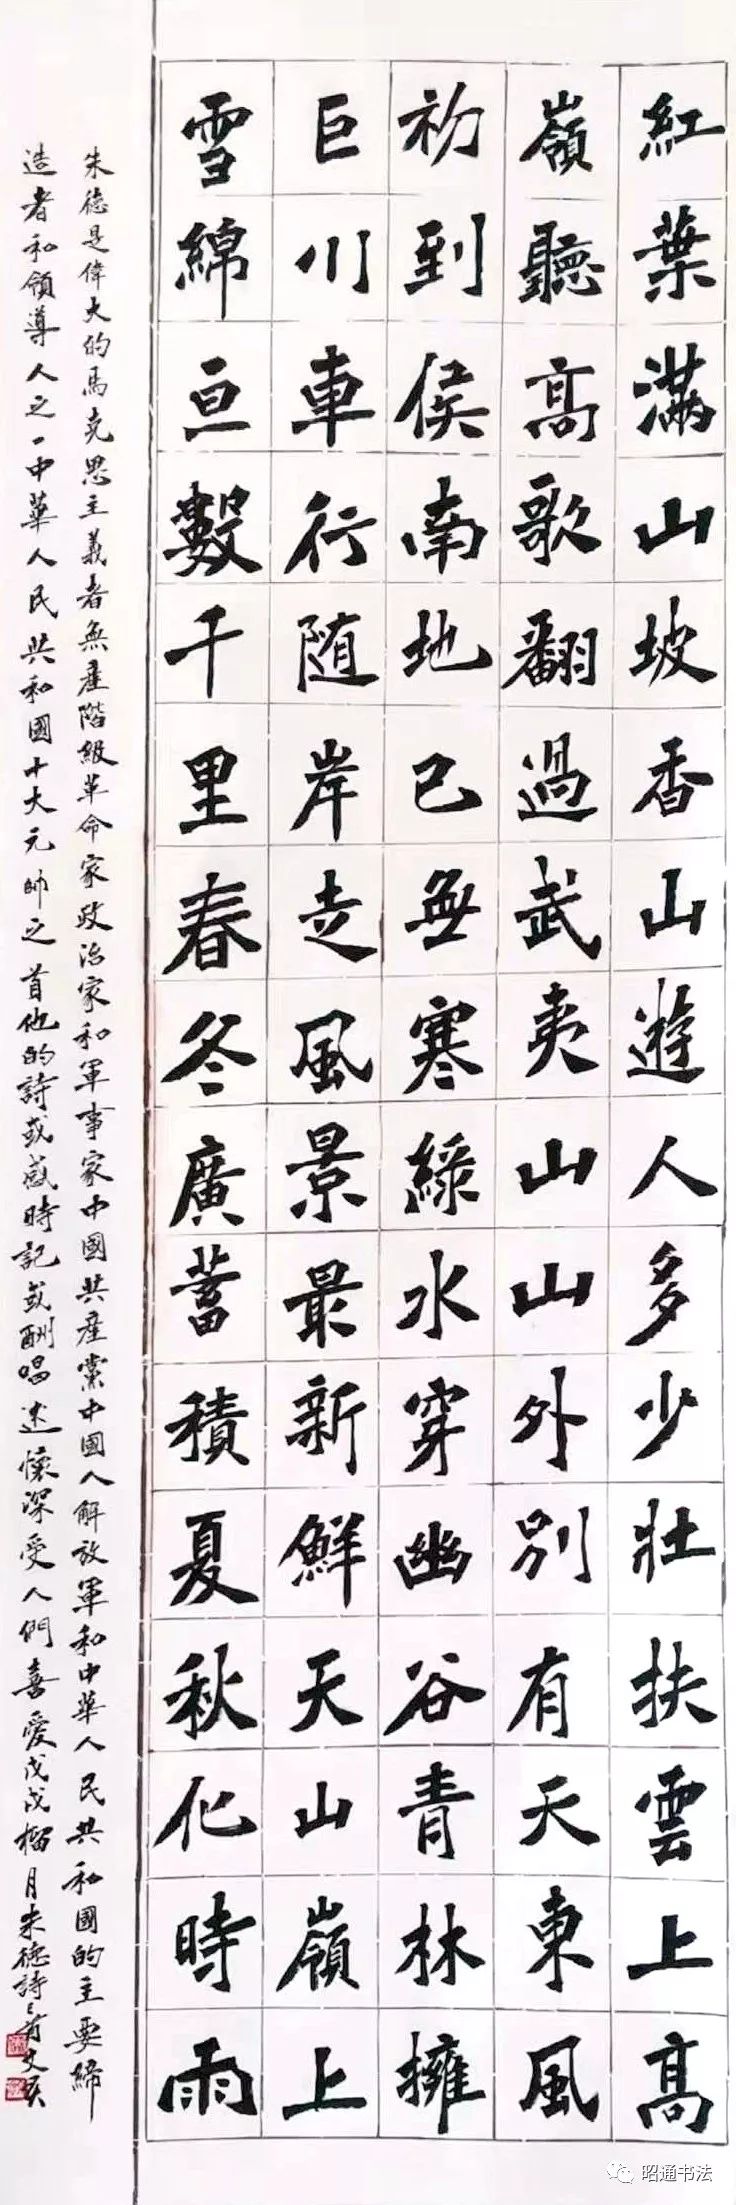 紅葉滿山坡香山遊人多少壯扶雲上高
嶺聽高歌翻過武夷山山外別有天東風
初到侯南地已無寒綠水穿幽谷青林擁
巨川車行随岸走風景最新鮮天山嶺上
雪綿亘數千里春冬廣蓄積夏秋化時雨
朱德是偉大的馬克思主義者無產階級革命家政治家和軍事家中國共產黨中國人解放軍和中華人民共和國的主要締
造者和領導人之一中華人民共和國十大元帥之首他的詩或感時記或酬唱述懷深受人們喜愛戊戌榴月朱德詩
昭通书法